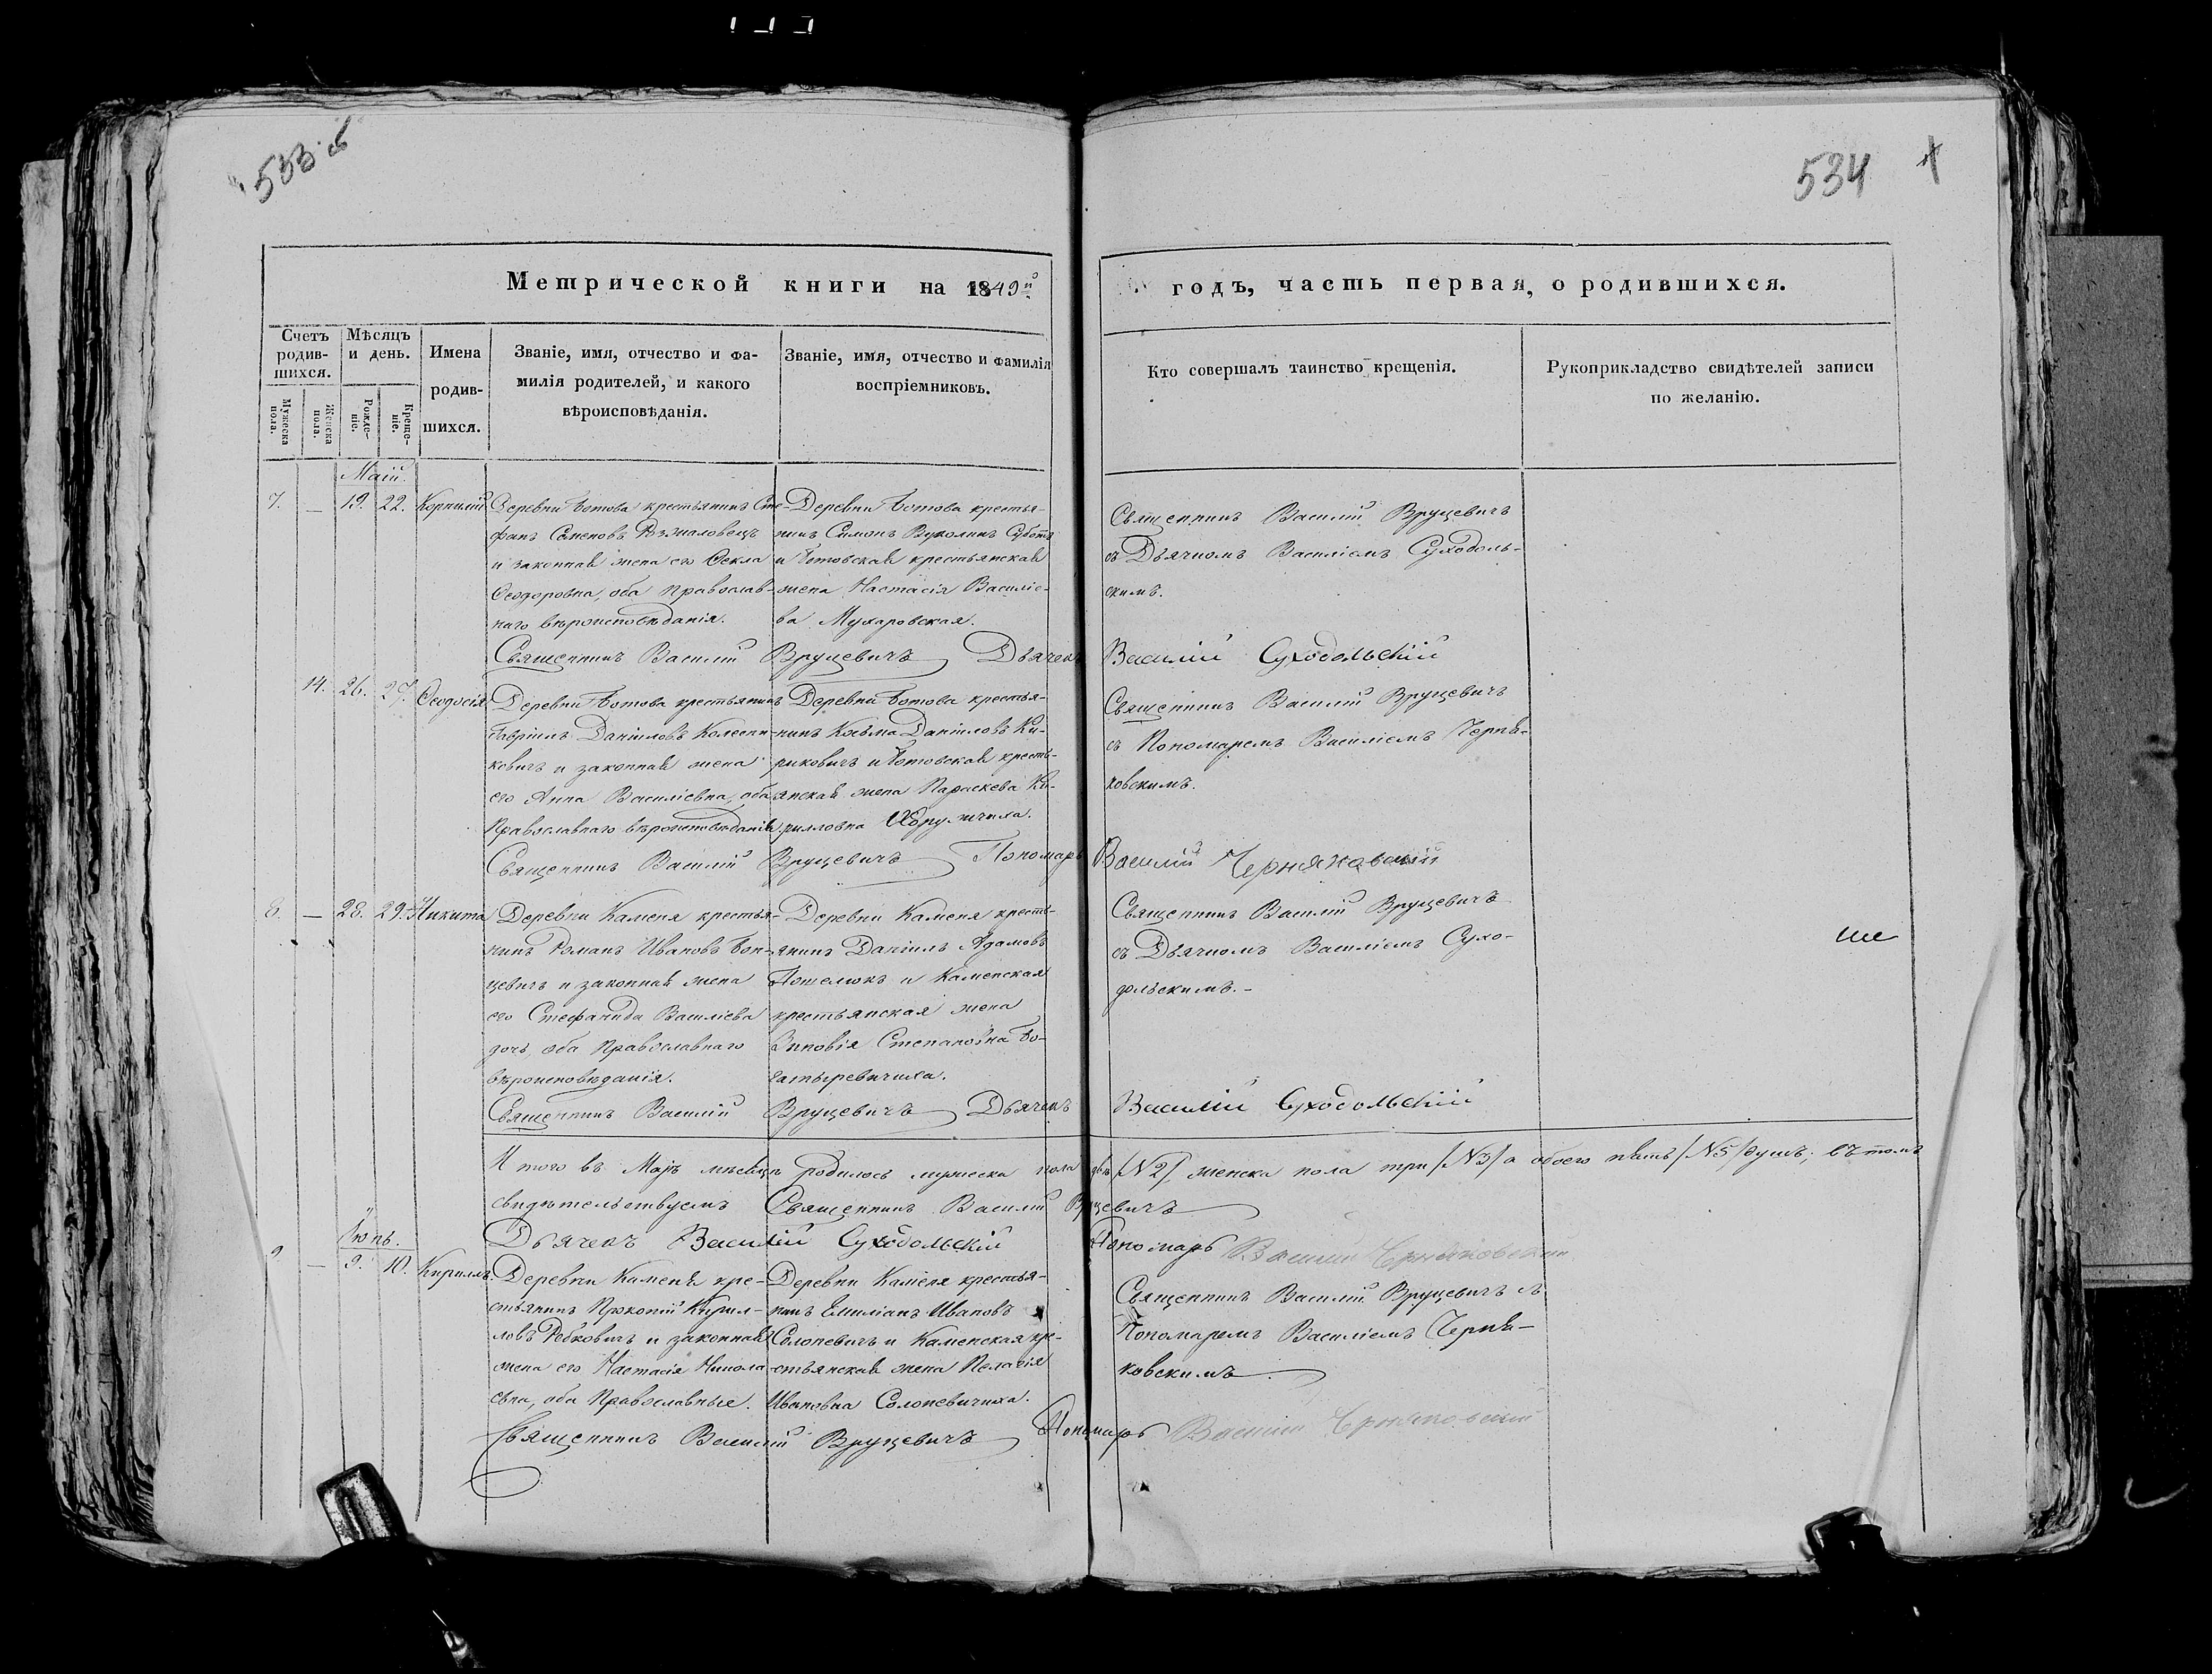 533 об
534
Метрической книги на 1849й годъ, часть первая, о родившихся.
Счетъ родив-шихся.
Мужеска пола.
Женска пола.
Мѣсяцъ и день.
Рожде-ніе.
Креще-ніе.
Имена родив-шихся.
Званіе, имя, отчество и фа-
милія родителей, и какого
вѣроисповѣданія.
Званіе, имя, отчество и фамилія
воспріемниковъ.
Кто совершалъ таинство крещенія.
Рукоприкладство свидѣтелей записи
по желанію.
Маій.
7. — 19. 22. Корнилій
Деревни Ботова крестьянинъ Сте-
фанъ Семеновъ
и законная жена его Фекла
Феодоровна, оба православ-
наго вѣроисповѣданія.
Деревни Ботова крестья-
нинъ Симонъ
и Ботовская крестьянская
жена Настасія Василіе-
ва Мухаровская.
Священникъ Василій Вруцевичъ
съ Дьячкомъ Василіемъ Суходоль-
скимъ.
Священникъ Василій Вруцевичъ Дьячекъ Василій Суходольскій
14. 26. 27. Феодосія
Деревни Ботова крестьянинъ
Гавріилъ Даніиловъ Колесни-
ковичъ и законная жена
его Анна Василіевна, оба
Православнаго вѣроисповѣданія.
Деревни Ботова крестья-
нинъ Козьма Даніиловъ Ки-
риковичъ и Ботовская кресть-
янская жена Параскева Ки-
рилловна
Священникъ Василій Вруцевичъ
съ Пономаремъ Василіемъ Черня-
ховскимъ.
Священникъ Василій Вруцевичъ Пономарь Василій Черняховскій
8. — 28. 29. Никита
Деревни Каменя крестья-
нинъ Романъ Ивановъ Бон-
цевичъ и законная жена
его Стефанида Василіева
дочь, оба Православнаго
вѣроисповѣданія.
Деревни Каменя кресть-
янинъ Даніилъ Адамовъ
и Каменская
крестьянская жена
Зиновія Степановна Бо-
гатыревичиха.
Священникъ Василій Вруцевичъ
съ Дьячкомъ Василіемъ Сухо-
дольскимъ.-
Священникъ Василій Вруцевичъ Дьячекъ Василій Суходольскій
И того въ Маѣ мѣсяцѣ родилось мужеска пола два /N2/, женска пола три /N3/ а обоего пять /N5/ душъ; въ томъ
свидѣтельствуемъ Священникъ Василій Вруцевичъ
Дьячекъ Василій Суходольскій Пономарь Василій Черняховскій
Іюнь.
9 — 9. 10. Кириллъ.
Деревни Каменя кре-
стьянинъ Прокопій Кирил-
ловъ Рабковичъ и законная
жена его Настасія Никола-
евна, оба Православные.
Деревни Каменя крестья-
нинъ Емиліанъ Ивановъ
Солоневичъ и Каменская кре-
стьянская жена Пелагія
Ивановна Солоневичиха.
Священникъ Василій Вруцевичъ съ
Пономаремъ Василіемъ Черня-
ховскимъ.
Священникъ Василій Вруцевичъ Пономарь Василій Черняховскій